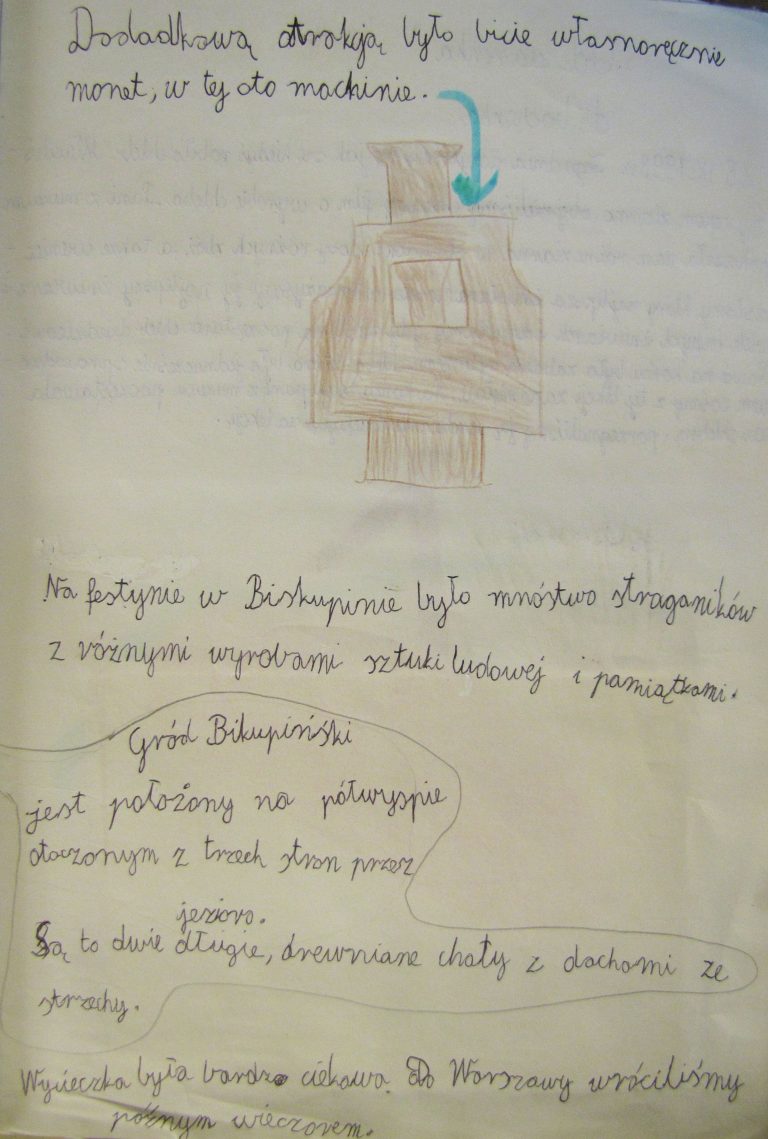 Dodadkową atrakcją było bicie własnoręcznie
monet, w tej oto machinie.
Na festynie w Biskupinie było mnóstwo straganików
z różnymi wyrobami sztuki ludowej i pamiątkami.
Gród Bikupiński
jest położony na półwyspie
otoczonym z trzech stron przez
jezioro.
Są to dwie długie, drewniane chaty z dachami ze
strzechy.
Wycieczka była bardzo ciekawa. Do Warszawy wróciliśmy
późnym wieczorem.